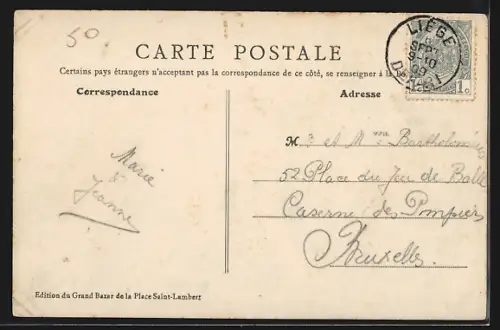 50
CARTE POSTALE
Certains pays étrangers n'acceptant pas la correspondance de ce côté, se renseigner à la
Correspondance
Adresse
LIÉGE
SEPT
9-10
09
DÉPART
1 c
M r et Mme Bartholoméus
52 Place du Jeu de Balle
Caserne des Pompiers
Bruxelles
Marie
&
Jeanne
Edition du Grand Bazar de la Place Saint-Lambert